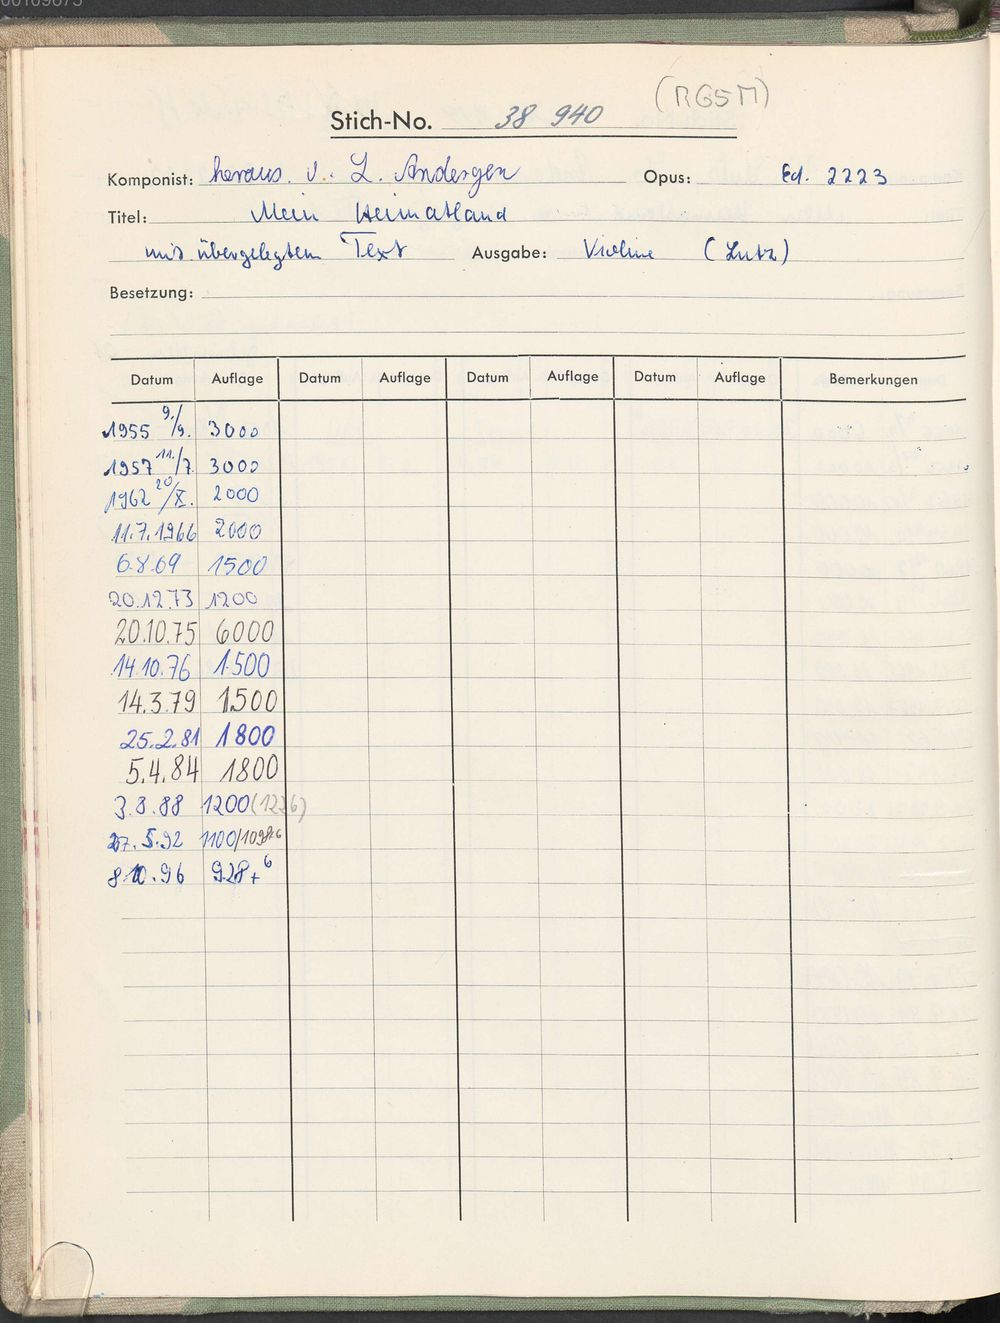 00109873
(RG5M)
Stich-No. 38 940
Komponist: heraus. v. L. Andergen Opus: Ed. 2223
Titel: Mein Heimatland
mit übergelegtem Text Ausgabe: Violine (Lutz)
Besetzung:
Datum Auflage Datum Auflage Datum Auflage Datum Auflage Bemerkungen
1955 9./9. 3000
1957 11./7. 3000
1962 20/X. 2000
11.7.1966 2000
6.8.69 1500
20.12.73 1200
20.10.75 6000
14.10.76 1.500
14.3.79 1500
25.2.81 1800
5.4.84 1800
3.8.88 1200 (1226)
27.5.92 1100/1098+6
8.10.96 928+6